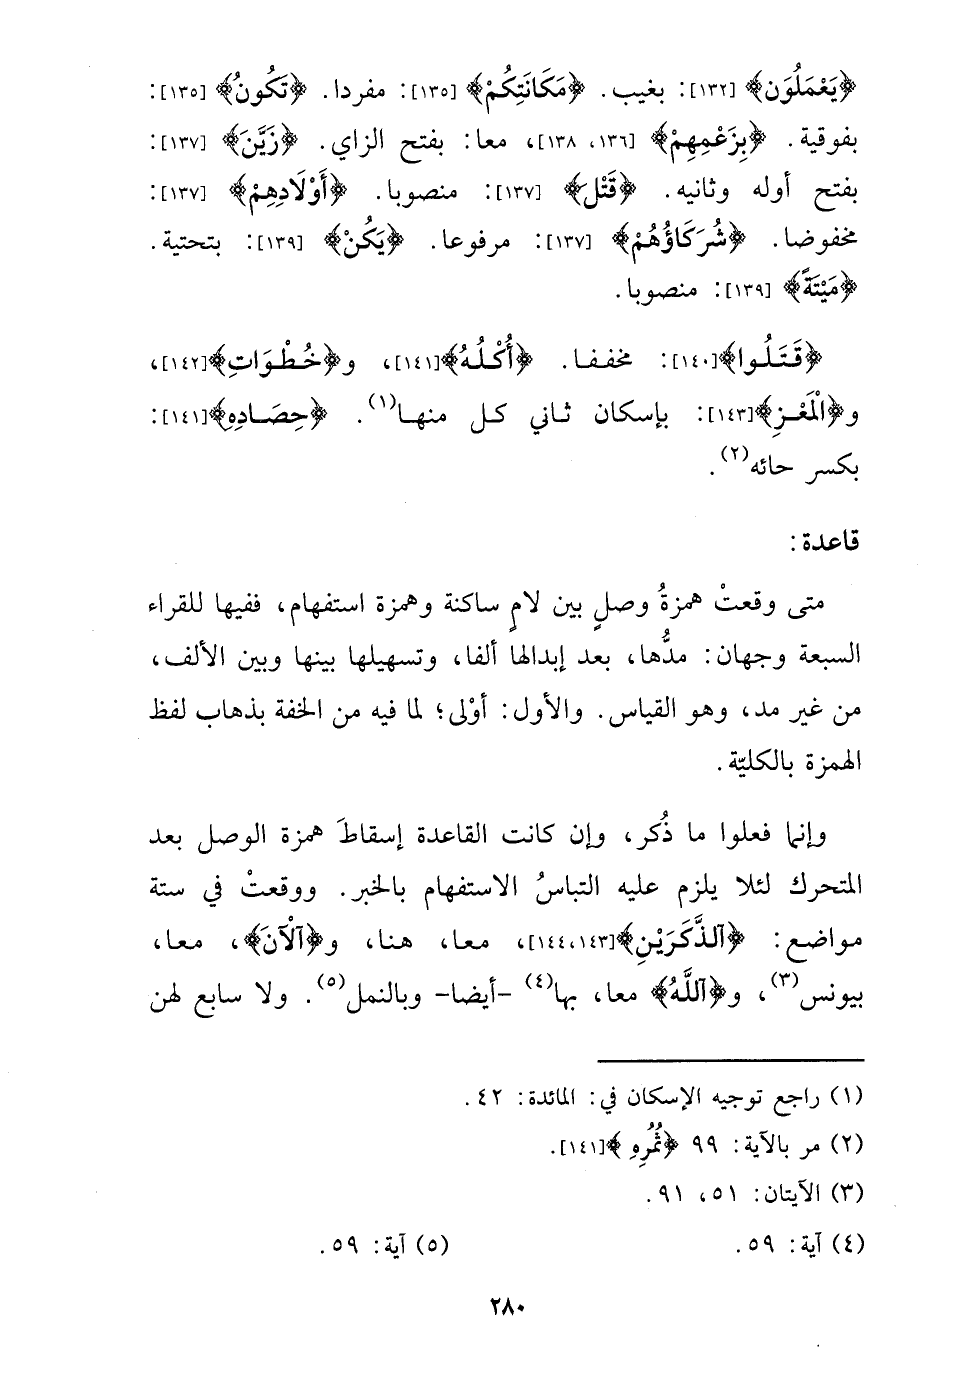 ﴿يَعْمَلُونَ﴾ [١٣٢]: بغيب. ﴿مَكَانَتِكُمْ﴾ [١٣٥]: مفردا. ﴿تَكُونُ﴾ [١٣٥]:
بفوقية. ﴿بِزَعْمِهِمْ﴾ [١٣٦، ١٣٨]، معا: بفتح الزاي. ﴿زَيَّنَ﴾ [١٣٧]:
بفتح أوله وثانيه. ﴿قَتْلَ﴾ [١٣٧]: منصوبا. ﴿أَوْلَادِهِمْ﴾ [١٣٧]:
مخفوضا. ﴿شُرَكَاؤُهُمْ﴾ [١٣٧]: مرفوعا. ﴿يَكُنْ﴾ [١٣٩]: بتحتية.
﴿مَيْتَةً﴾ [١٣٩]: منصوبا.
﴿قَتَلُوا﴾[١٤٠]: مخففا. ﴿أُكْلُهُ﴾[١٤١]، و﴿خُطْوَاتِ﴾[١٤٢]،
و﴿الْمَعْزِ﴾[١٤٣]: بإسكان ثاني كل منها(١). ﴿حِصَادِهِ﴾[١٤١]:
بكسر حائه(٢).
قاعدة:
متى وقعتْ همزةُ وصلٍ بين لامٍ ساكنة وهمزة استفهام، ففيها للقراء
السبعة وجهان: مدُّها، بعد إبدالها ألفا، وتسهيلها بينها وبين الألف،
من غير مد، وهو القياس. والأول: أوْلى؛ لما فيه من الخفة بذهاب لفظ
الهمزة بالكليّة.
وإنما فعلوا ما ذُكر، وإن كانت القاعدة إسقاطَ همزة الوصل بعد
المتحرك لئلا يلزم عليه التباسُ الاستفهام بالخبر. ووقعتْ في ستة
مواضع: ﴿آلذَّكَرَيْنِ﴾[١٤٣،١٤٤]، معا، هنا، و﴿آلْآنَ﴾، معا،
بيونس(٣)، و﴿آللَّهُ﴾ معا، بها(٤) -أيضا- وبالنمل(٥). ولا سابع لهن
(١) راجع توجيه الإسكان في: المائدة: ٤٢.
(٢) مر بالآية: ٩٩ ﴿ثُمُرِهِ﴾[١٤١].
(٣) الآيتان: ٥١، ٩١.
(٤) آية: ٥٩. (٥) آية: ٥٩.
٢٨٠